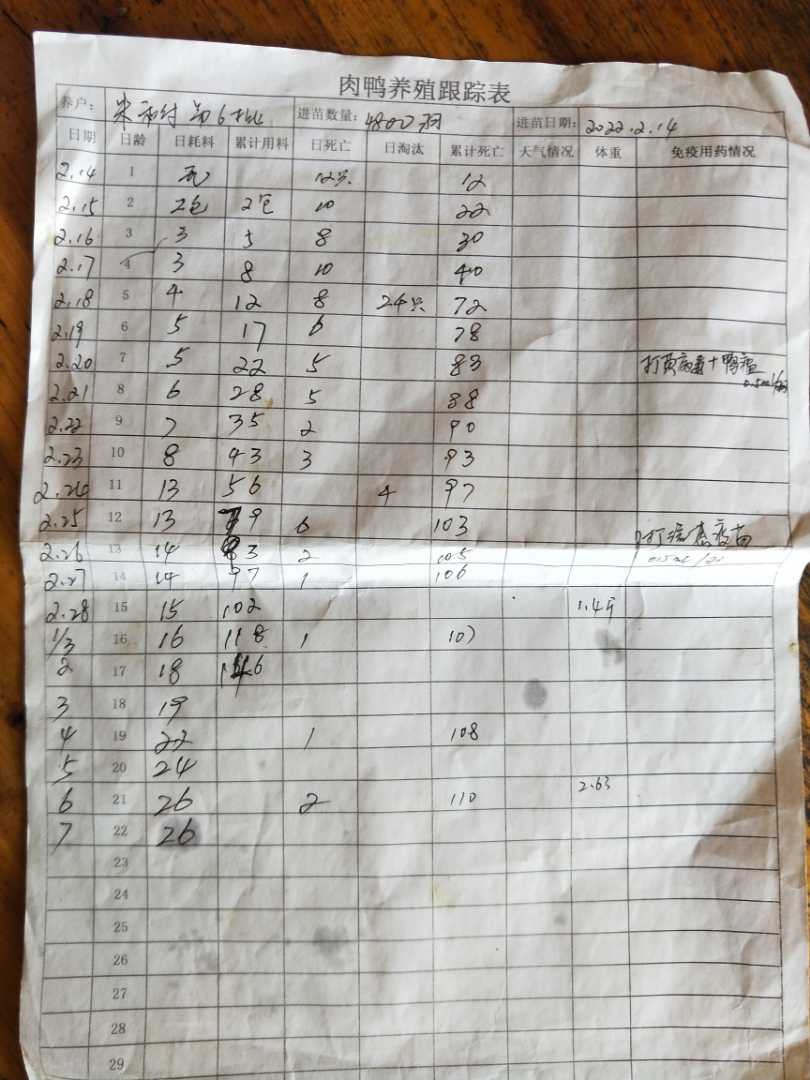 肉鸭养殖跟踪表
养户： 第6批 进苗数量：4800羽 进苗日期：2022.2.14
日期 日龄 日耗料 累计用料 日死亡 日淘汰 累计死亡 天气情况 体重 免疫用药情况
2.14 1 12只 12
2.15 2 2包 2包 10 22
2.16 3 3 5 8 30
2.17 4 3 8 10 40
2.18 5 4 12 8 24只 72
2.19 6 5 17 6 78
2.20 7 5 22 5 83 打黄病毒+鸭瘟
2.21 8 6 28 5 88
2.22 9 7 35 2 90
2.23 10 8 43 3 93
2.24 11 13 56 4 97
2.25 12 13 9 6 103 疫苗
2.26 13 14 83 2 105
2.27 14 14 97 1 106
2.28 15 15 102 1.4斤
1/3 16 16 118 1 107
2 17 18
3 18 19
4 19 22 1 108
5 20 24
6 21 26 2 110 2.63
7 22 26
23
24
25
26
27
28
29